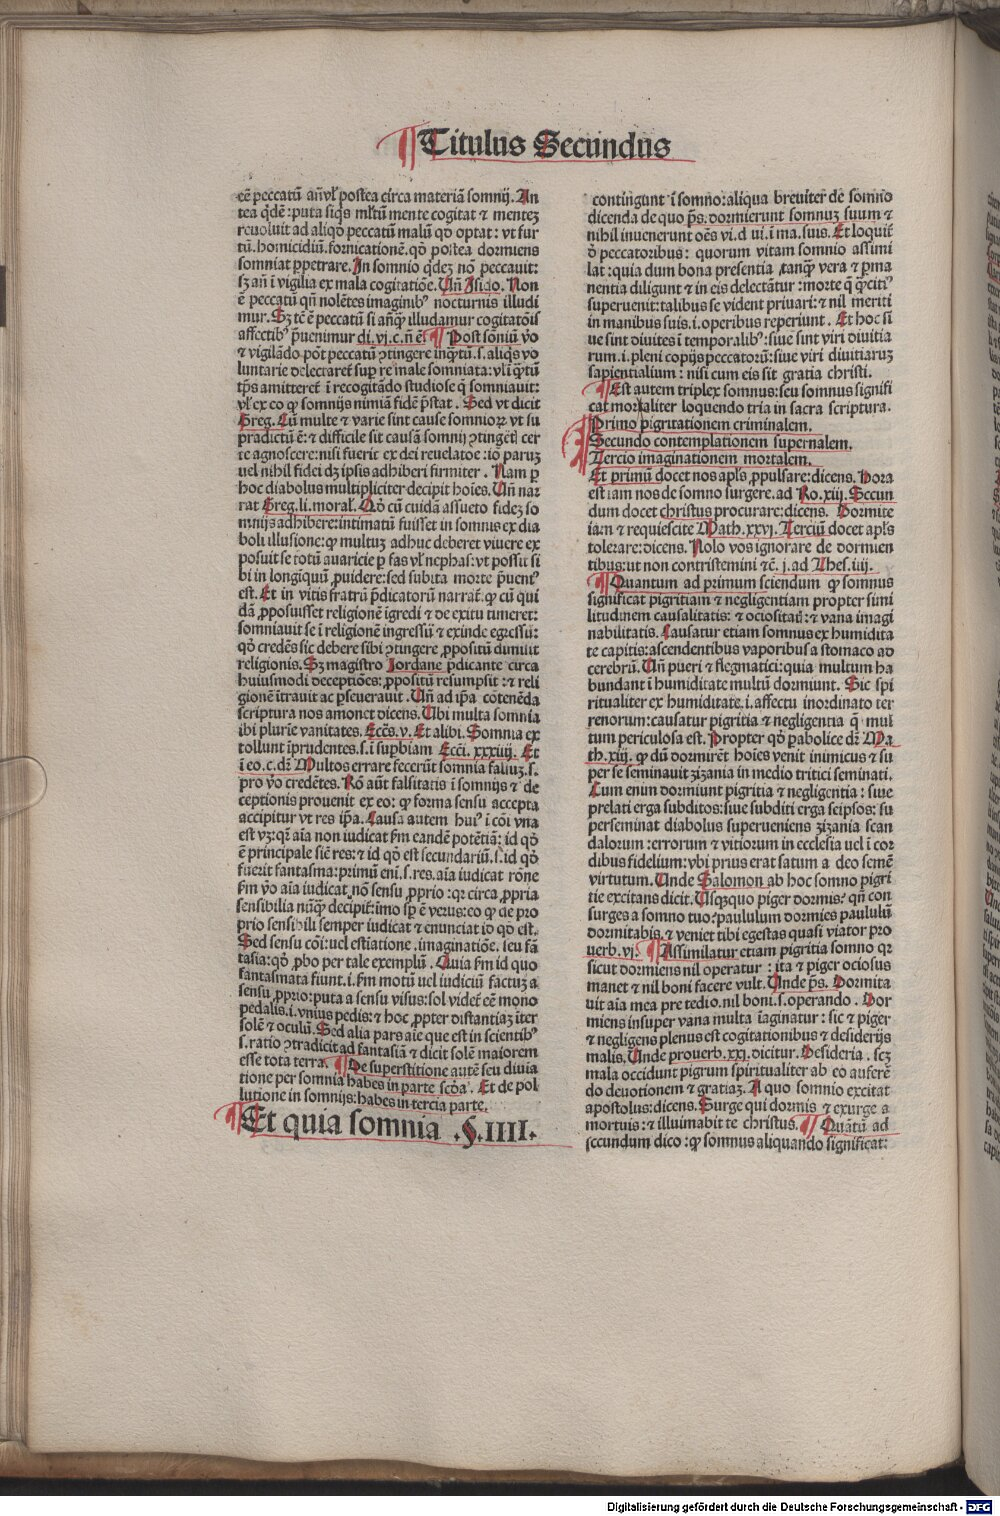 Titulus Secundus
eē peccatū añ vl' postea circa materiā somnij. An
tea qͥdē: puta siqͥs ml'tū mente cogitat ⁊ menteꝫ
reuoluit ad aliqḋ peccatū malū qḋ optat: vt fur
tū. homicidiū. fornicationē. qḋ postea dormiens
somniat ꝑpetrare. In somnio qͥdeꝫ nō peccauit:
sꝫ añ ī vigilia ex mala cogitatiōe. Uñ Isido. Non
ē peccatū qñ nolētes imaginibꝰ nocturnis illudi
mur. Sꝫ tc̄ ē peccatū si añqꝫ illudamur cogitatōis
affectibꝰ p̄uenimur di. vj. c. ñ ē ¶ Post sōniū ṽo
⁊ vigilādo pōt peccatū ꝯtingere inqͣtū .s. aliqͥs vo
luntarie delectaret̄ suꝑ re male somniata: vl' ī qͣtū
tp̄s amitteret̄ ī recogitādo studiose qḋ somniauit:
vl' ex eo ꝙ somnijs nimiā fidē p̄stat. Sed vt dicit
Greg. Cū multe ⁊ varie sint cause somnioꝝ vt su
pradictū ē: ⁊ difficile sit causā somnij ꝯtingēti cer
te agnoscere: nisi fuerit ex dei reuelatōe: iō paruꝫ
uel nihil fidei dꝫ ipsis adhiberi firmiter. Nam ꝑ
hoc diabolus multipliciter decipit hoīes. Uñ nar
rat Greg. li. moral'. Qḋ cū cuidā assueto fideꝫ so
mnijs adhibere: intimatū fuisset in somnis ex dia
boli illusione: ꝙ multuꝫ adhuc deberet viuere ex
posuit se totū auaricie ꝑ fas vl' nephas: vt possꝫ si
bi in longīquū ꝓuidere: sed subita morte p̄uentꝰ
est. Et in vitis fratrū p̄dicatorū narrat̄ ꝙ cū qui
dā ꝓposuisset religionē īgredi ⁊ de exitu timeret:
somniauit se ī religionē ingressū ⁊ exinde egressū:
qḋ credēs sic debere sibi ꝯtingere ꝓpositū dimisit
religionis. Sꝫ magistro Jordane p̄dicante circa
huiusmodi deceptiōes: ꝓpositū resumpsit: ⁊ reli
gionē ītrauit ac ꝑseuerauit. Uñ ad ip̄a cōtenēda
scriptura nos amonet dicens. Ubi multa somnia
ibi plurīe vanitates. Ecc̄s. v. Et alibi. Somnia ex
tollunt īprudentes .s. ī suꝑbiam Ecci. xxxiiij. Et
ī eo. c. dr̄ Multos errare fecerūt somnia falsuꝫ .s.
pro ṽo credētes. Rō aūt falsitatis ī somnijs ⁊ de
ceptionis prouenit ex eo: ꝙ forma sensu accepta
accipitur vt res ip̄a. Causa autem huiꝰ ī cōi vna
est vꝫ: qr̄ aīa non iudicat ẜm eandē potētiā: id qḋ
ē principale siē res: ⁊ id qḋ est secundariū .s. id qḋ
fuerit fantasma: primū eni .s. res. aīa iudicat rōne
ẜm ṽo aīa iudicat nō sensu ꝓprio: qꝛ circa ꝓpria
sensibilia nūqͣ decipit̄: imo sp̄ ē verus: eo ꝙ de pro
prio sensibili semper iudicat ⁊ enunciat id qḋ est.
Sed sensu cōi: uel estiatione. imaginatiōe. seu fā
tasia: qḋ ꝓbo per tale exemplū. Quia ẜm id quo
fantasmata fiunt .i. ẜm motū uel iudiciū factuꝫ a
sensu ꝓprio: puta a sensu visus: sol videt̄ eē mono
pedalis .i. vnius pedis: ⁊ hoc ꝓpter distantiaꝫ īter
solē ⁊ oculū. Sed alia pars aīe que est in scientibꝰ
.s. ratio ꝯtradicit ad fantasiā ⁊ dicit solē maiorem
esse tota terra. ¶ De superstitione autē seu diuia
tione per somnia habes in parte scḋa. Et de pol
lutione in somnijs: habes in tercia parte.
¶ Et quia somnia .§. IIII.
contingunt ī somno: aliqua breuiter de somno
dicenda de quo p̄s. dormierunt somnuꝫ suum ⁊
nihil inuenerunt oēs vi. d ui. ī ma. suis. Et loquit̄
ḋ peccatoribus: quorum vitam somnio assimi
lat: quia dum bona presentia tanqꝫ vera ⁊ ꝑma
nentia diligunt ⁊ in eis delectātur: morte qͣ qͣcitiꝰ
superuenit: talibus se vident priuari: ⁊ nil meriti
in manibus suis .i. operibus reperiunt. Et hoc si
ue sint diuites ī temporalibꝰ: siue sint viri diuitia
rum .i. pleni copijs peccatorū: siue viri diuitiaruꝫ
sapientialium: nisi cum eis sit gratia christi.
¶ Est autem triplex somnus: seu somnus signifi
cat moraliter loquendo tria in sacra scriptura.
Primo pigritationem criminalem.
Secundo contemplationem supernalem.
Tercio imaginationem mortalem.
Et primū docet nos apl's ꝓpulsare: dicens. Hora
est iam nos de somno surgere. ad Ro. xiij. Secun
dum docet christus procurare: dicens. Dormite
iam ⁊ requiescite Math. xxvj. Terciū docet apl's
tolerare: dicens. Nolo vos ignorare de dormien
tibus: ut non contristemini ⁊c̄. j. ad Thes. iiij.
¶ Quantum ad primum sciendum ꝙ somnus
significat pigritiam ⁊ negligentiam propter simi
litudinem causalitatis: ⁊ ociositatꝭ: ⁊ vana imagi
nabilitatis. Causatur etiam somnus ex humidita
te capitis: ascendentibus vaporibus a stomaco ad
cerebrū. Uñ pueri ⁊ flegmatici: quia multum ha
bundant ī humiditate multū dormiunt. Sic spi
ritualiter ex humiditate .i. affectu inordinato ter
renorum: causatur pigritia ⁊ negligentia qͣ mul
tum periculosa est. Propter qḋ ꝑabolice dr̄ Ma
th. xiij. ꝙ dū dormirēt hoīes venit inimicus ⁊ su
per se seminauit zizania in medio tritici seminati.
Cum enim dormiunt pigritia ⁊ negligentia: siue
prelati erga subditos: siue subditi erga seipsos: su
perseminat diabolus superueniens zizania scan
dalorum: errorum ⁊ vitiorum in ecclesia uel ī cor
dibus fidelium: vbi prius erat satum a deo semē
virtutum. Unde Salomon ab hoc somno pigri
tie excitans dicit. Usqꝫquo piger dormis? qñ con
surges a somno tuo? paululum dormies paululū
dormitabis ⁊ veniet tibi egestas quasi viator pro
uerb. vj. ¶ Assimilatur etiam pigritia somno qꝛ
sicut dormiens nil operatur: ita ⁊ piger ociosus
manet ⁊ nil boni facere vult. Unde p̄s. Dormita
uit aīa mea pre tedio. nil boni .s. operando. Dor
miens insuper vana multa īaginatur: sic ⁊ piger
⁊ negligens plenus est cogitationibus ⁊ desiderijs
malis. Unde prouerb. xxj. dicitur. Desideria. scꝫ
mala occidunt pigrum spiritualiter ab eo auferē
do deuotionem ⁊ gratiaꝫ. A quo somnio excitat
apostolus: dicens. Surge qui dormis ⁊ exurge a
mortuis: ⁊ illuimabit te christus. ¶ Quātū ad
secundum dico: ꝙ somnus aliquando significat:
Digitalisierung gefördert durch die Deutsche Forschungsgemeinschaft - DFG